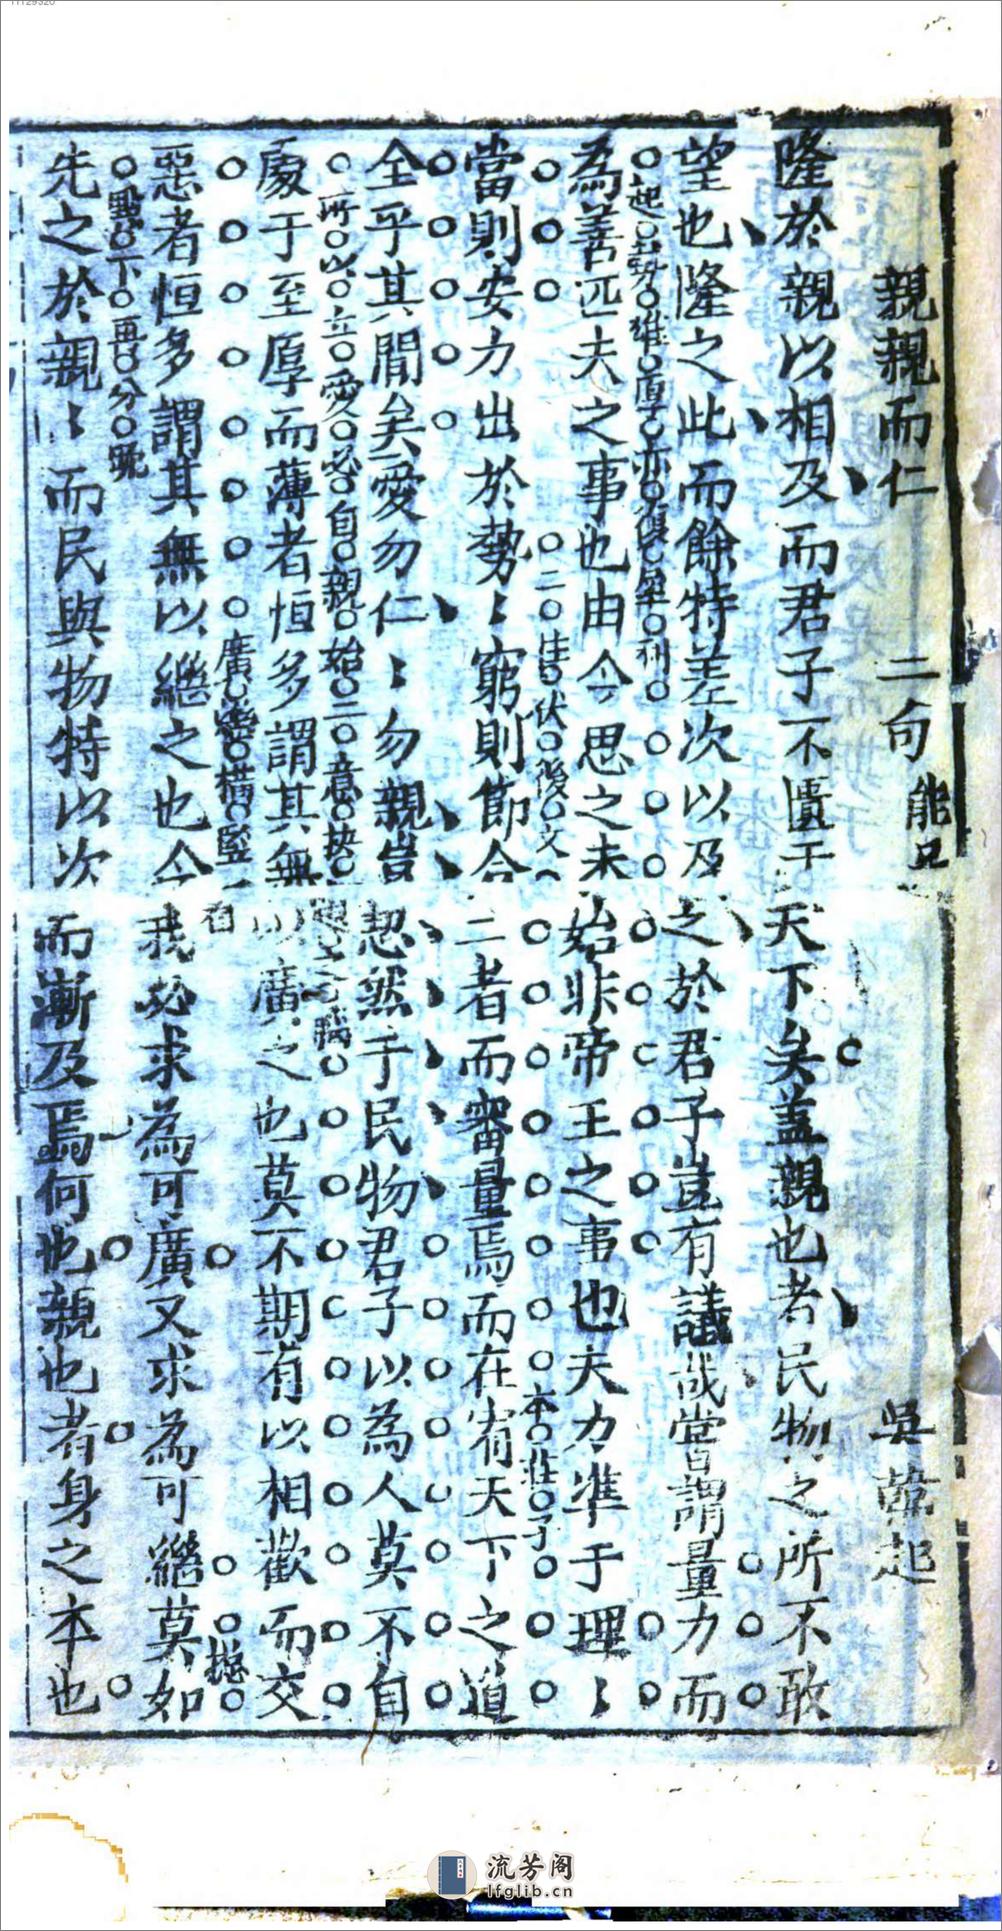 親親而仁 二句 吳韓起
隆於親以相及而君子不匱于天下矣蓋親也者民物之所不敢
望也隆之此而餘特差次以及之於君子豈有議哉嘗謂量力而
起勢雖直亦
為善匹夫之事也由今思之未始非帝王之事也夫力準于理〻
二法伏後文 本莊子
當則安力出於勢〻窮則節合二者而審量焉而在宥天下之道
全乎其間矣愛勿仁〻勿親豈恝然于民物君子以為人莫不自
所以立愛必自親始二意
處于至厚而薄者恒多謂其無以廣之也莫不期有以相歡而交
廣 橫豎
惡者恒多謂其無以繼之也今我必求為可廣又求為可繼莫如
點下再分
先之於親〻而民與物特以次而漸及焉何也親也者身之本也
流芳阁
lfglib.cn